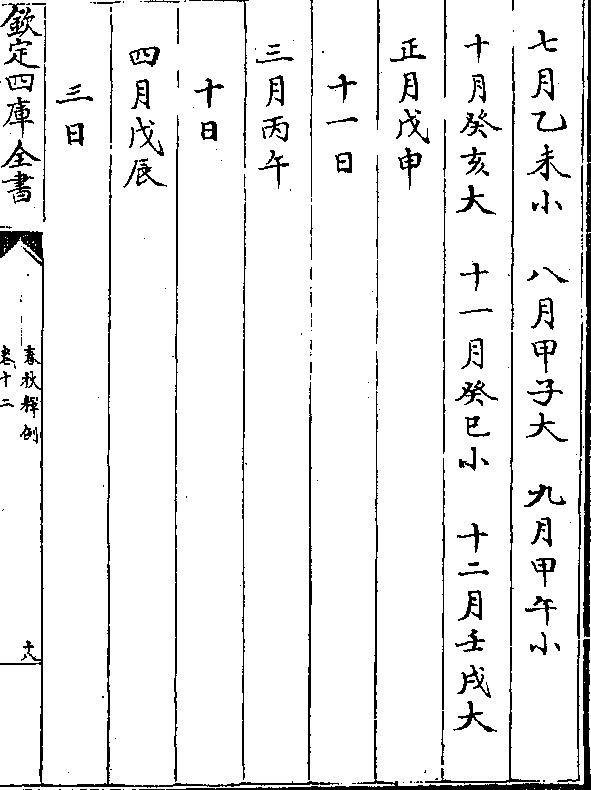 七月乙未小　八月甲子大　九月甲午小
十月癸亥大　十一月癸巳小　十二月壬戌大
正月戊申
十一日
三月丙午
十日
四月戊辰
三日
欽定四庫全書
春秋釋例
卷十二
十八